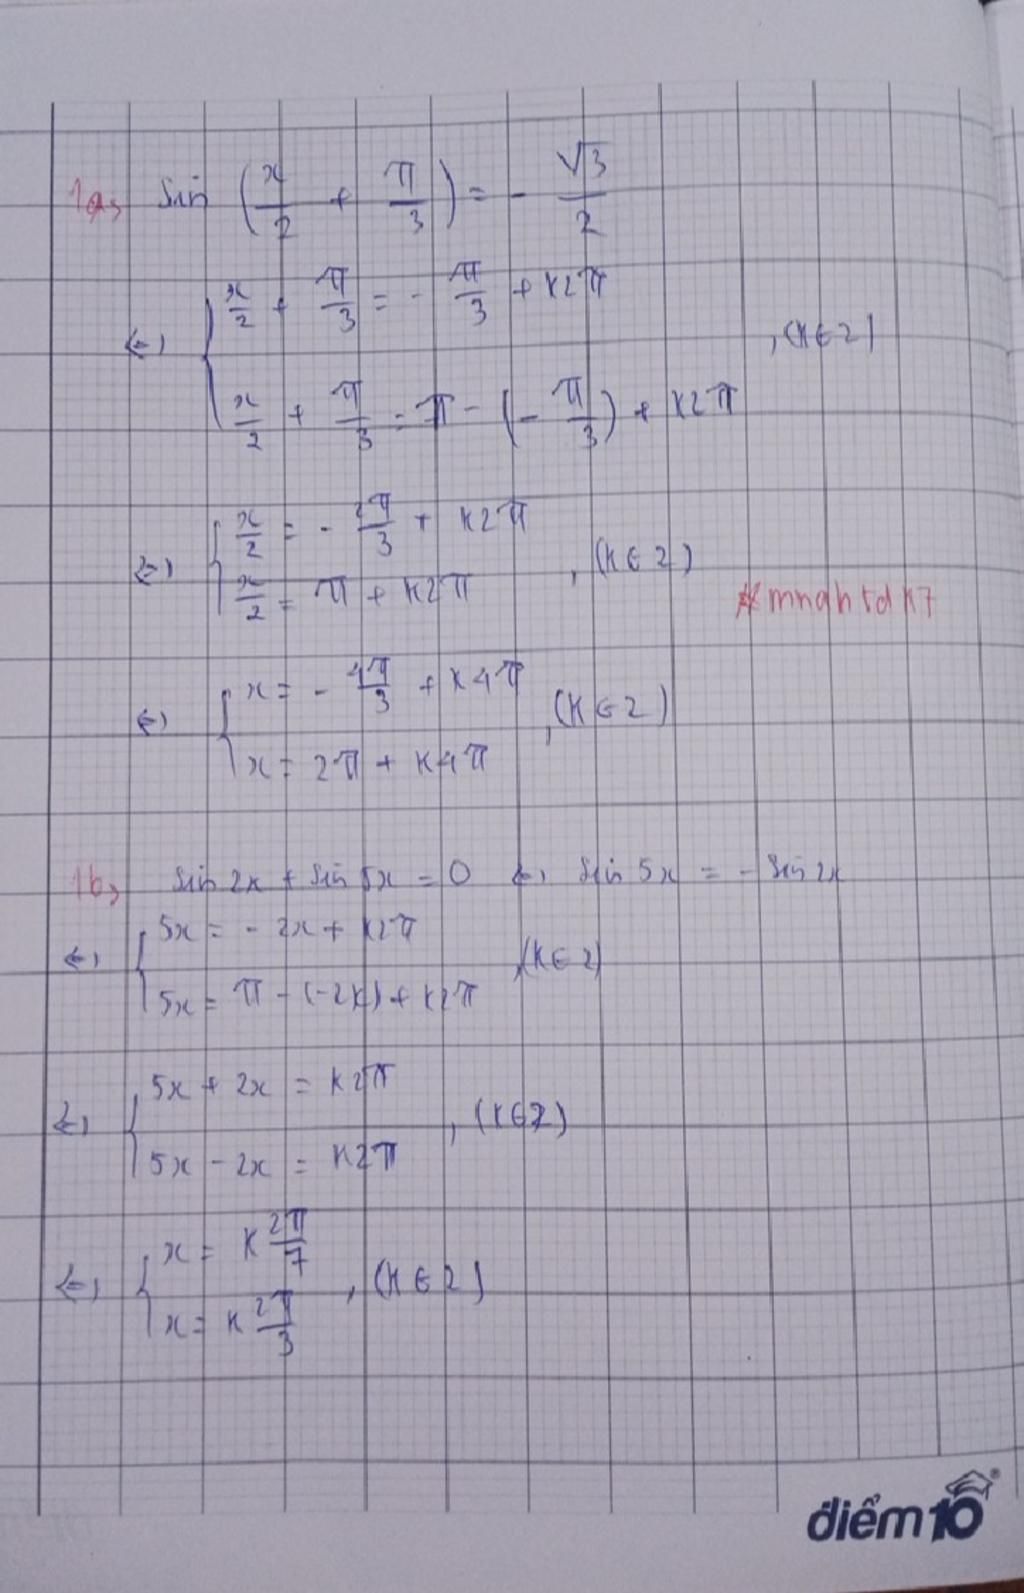 1a, sin (x/2 + π/3) = - √3/2
<=> { x/2 + π/3 = - π/3 + k2π
x/2 + π/3 = π - (- π/3) + k2π , (k ∈ Z)
<=> { x/2 = - 2π/3 + k2π
x/2 = π + k2π , (k ∈ Z)
* mnghtdk7
<=> { x = - 4π/3 + k4π
x = 2π + k4π , (k ∈ Z)
1b, sin 2x + sin 5x = 0 <=> sin 5x = - sin 2x
<=> { 5x = - 2x + k2π
5x = π - (-2x) + k2π , (k ∈ Z)
<=> { 5x + 2x = k2π
5x - 2x = k2π , (k ∈ Z)
<=> { x = k 2π/7
x = k 2π/3 , (k ∈ Z)
điểm10